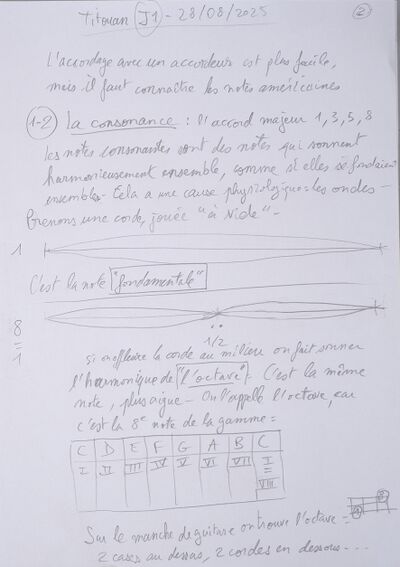 Titouan J1 - 28/08/2025
2
L'accordage avec un accordeur est plus facile,
mais il faut connaître les notes américaines
1-2 La consonance : l'accord majeur 1, 3, 5, 8
Les notes consonantes sont des notes qui sonnent
harmonieusement ensemble, comme si elles se fondaient
ensemble - Cela a une cause physiologique = les ondes -
Prenons une corde, jouée "à vide" -
1
C'est la note "fondamentale"
8
=
1
1/2
si on effleure la corde au milieu on fait sonner
l'harmonique de "l'octave". C'est la même
note, plus aigue - On l'appelle l'octave, car
c'est la 8e note de la gamme =
C D E F G A B C
I II III IV V VI VII I
=
VIII
Sur le manche de guitare on trouve l'octave =
2 cases au dessus, 2 cordes en dessous ...